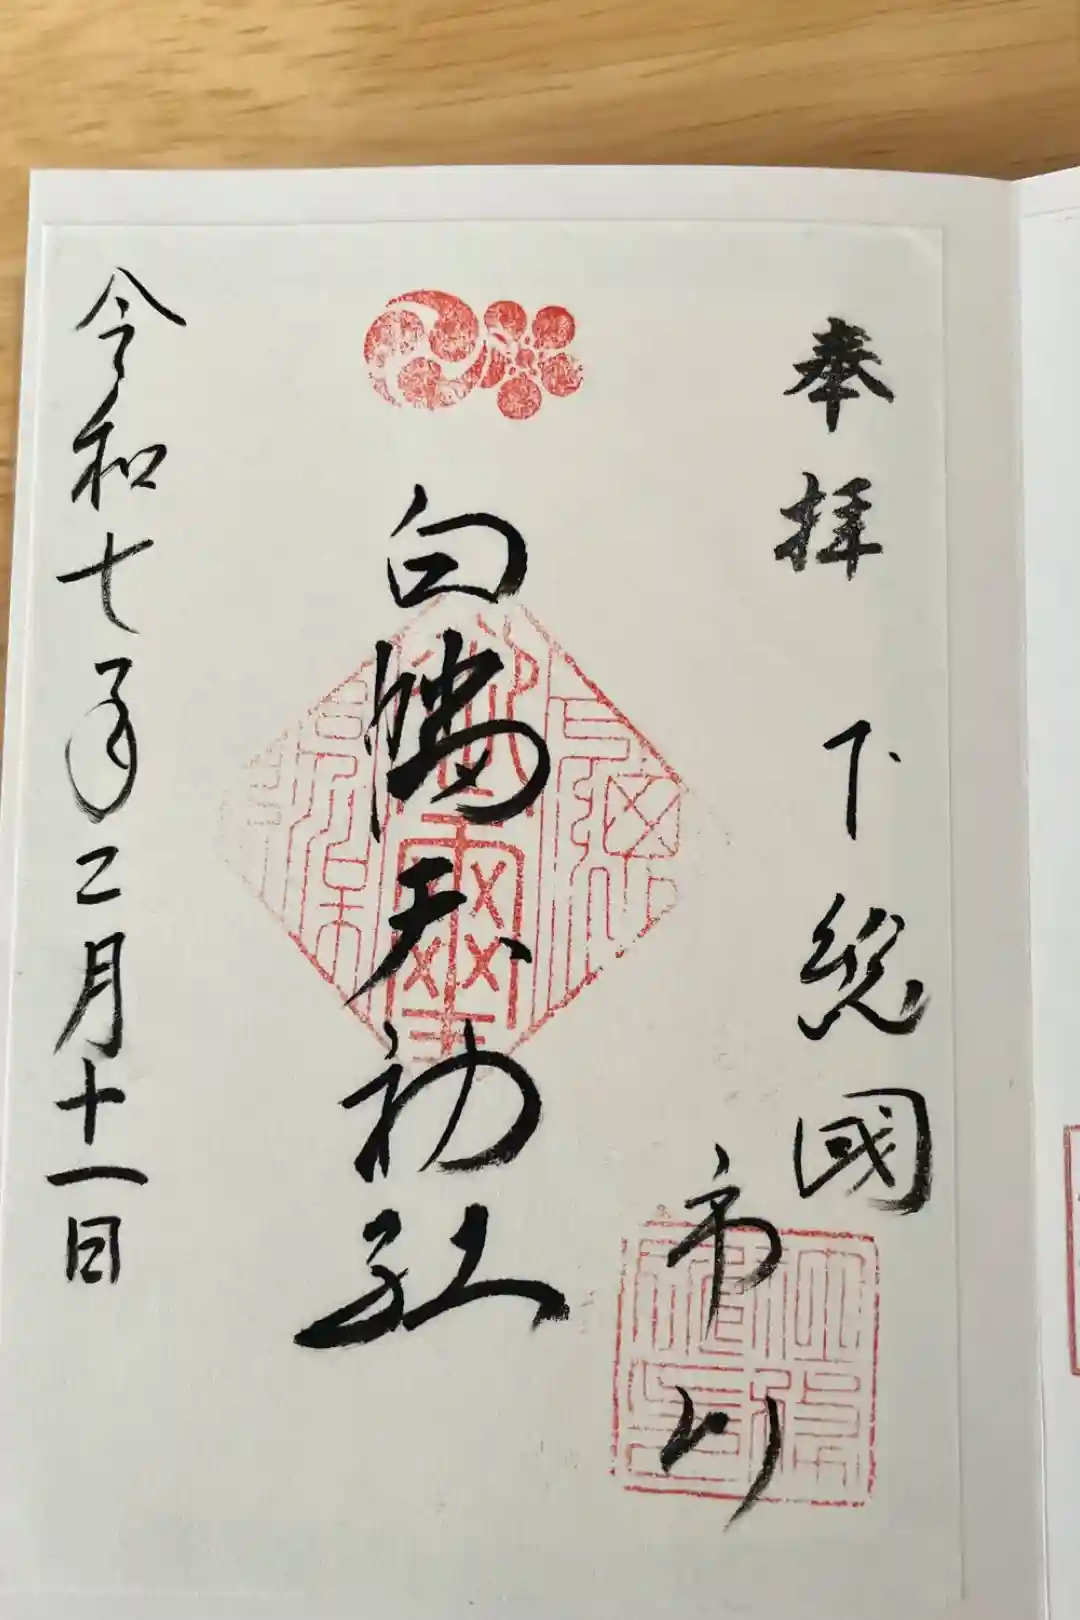 奉拝 下総國
市川
白幡天神社
令和七年二月十一日